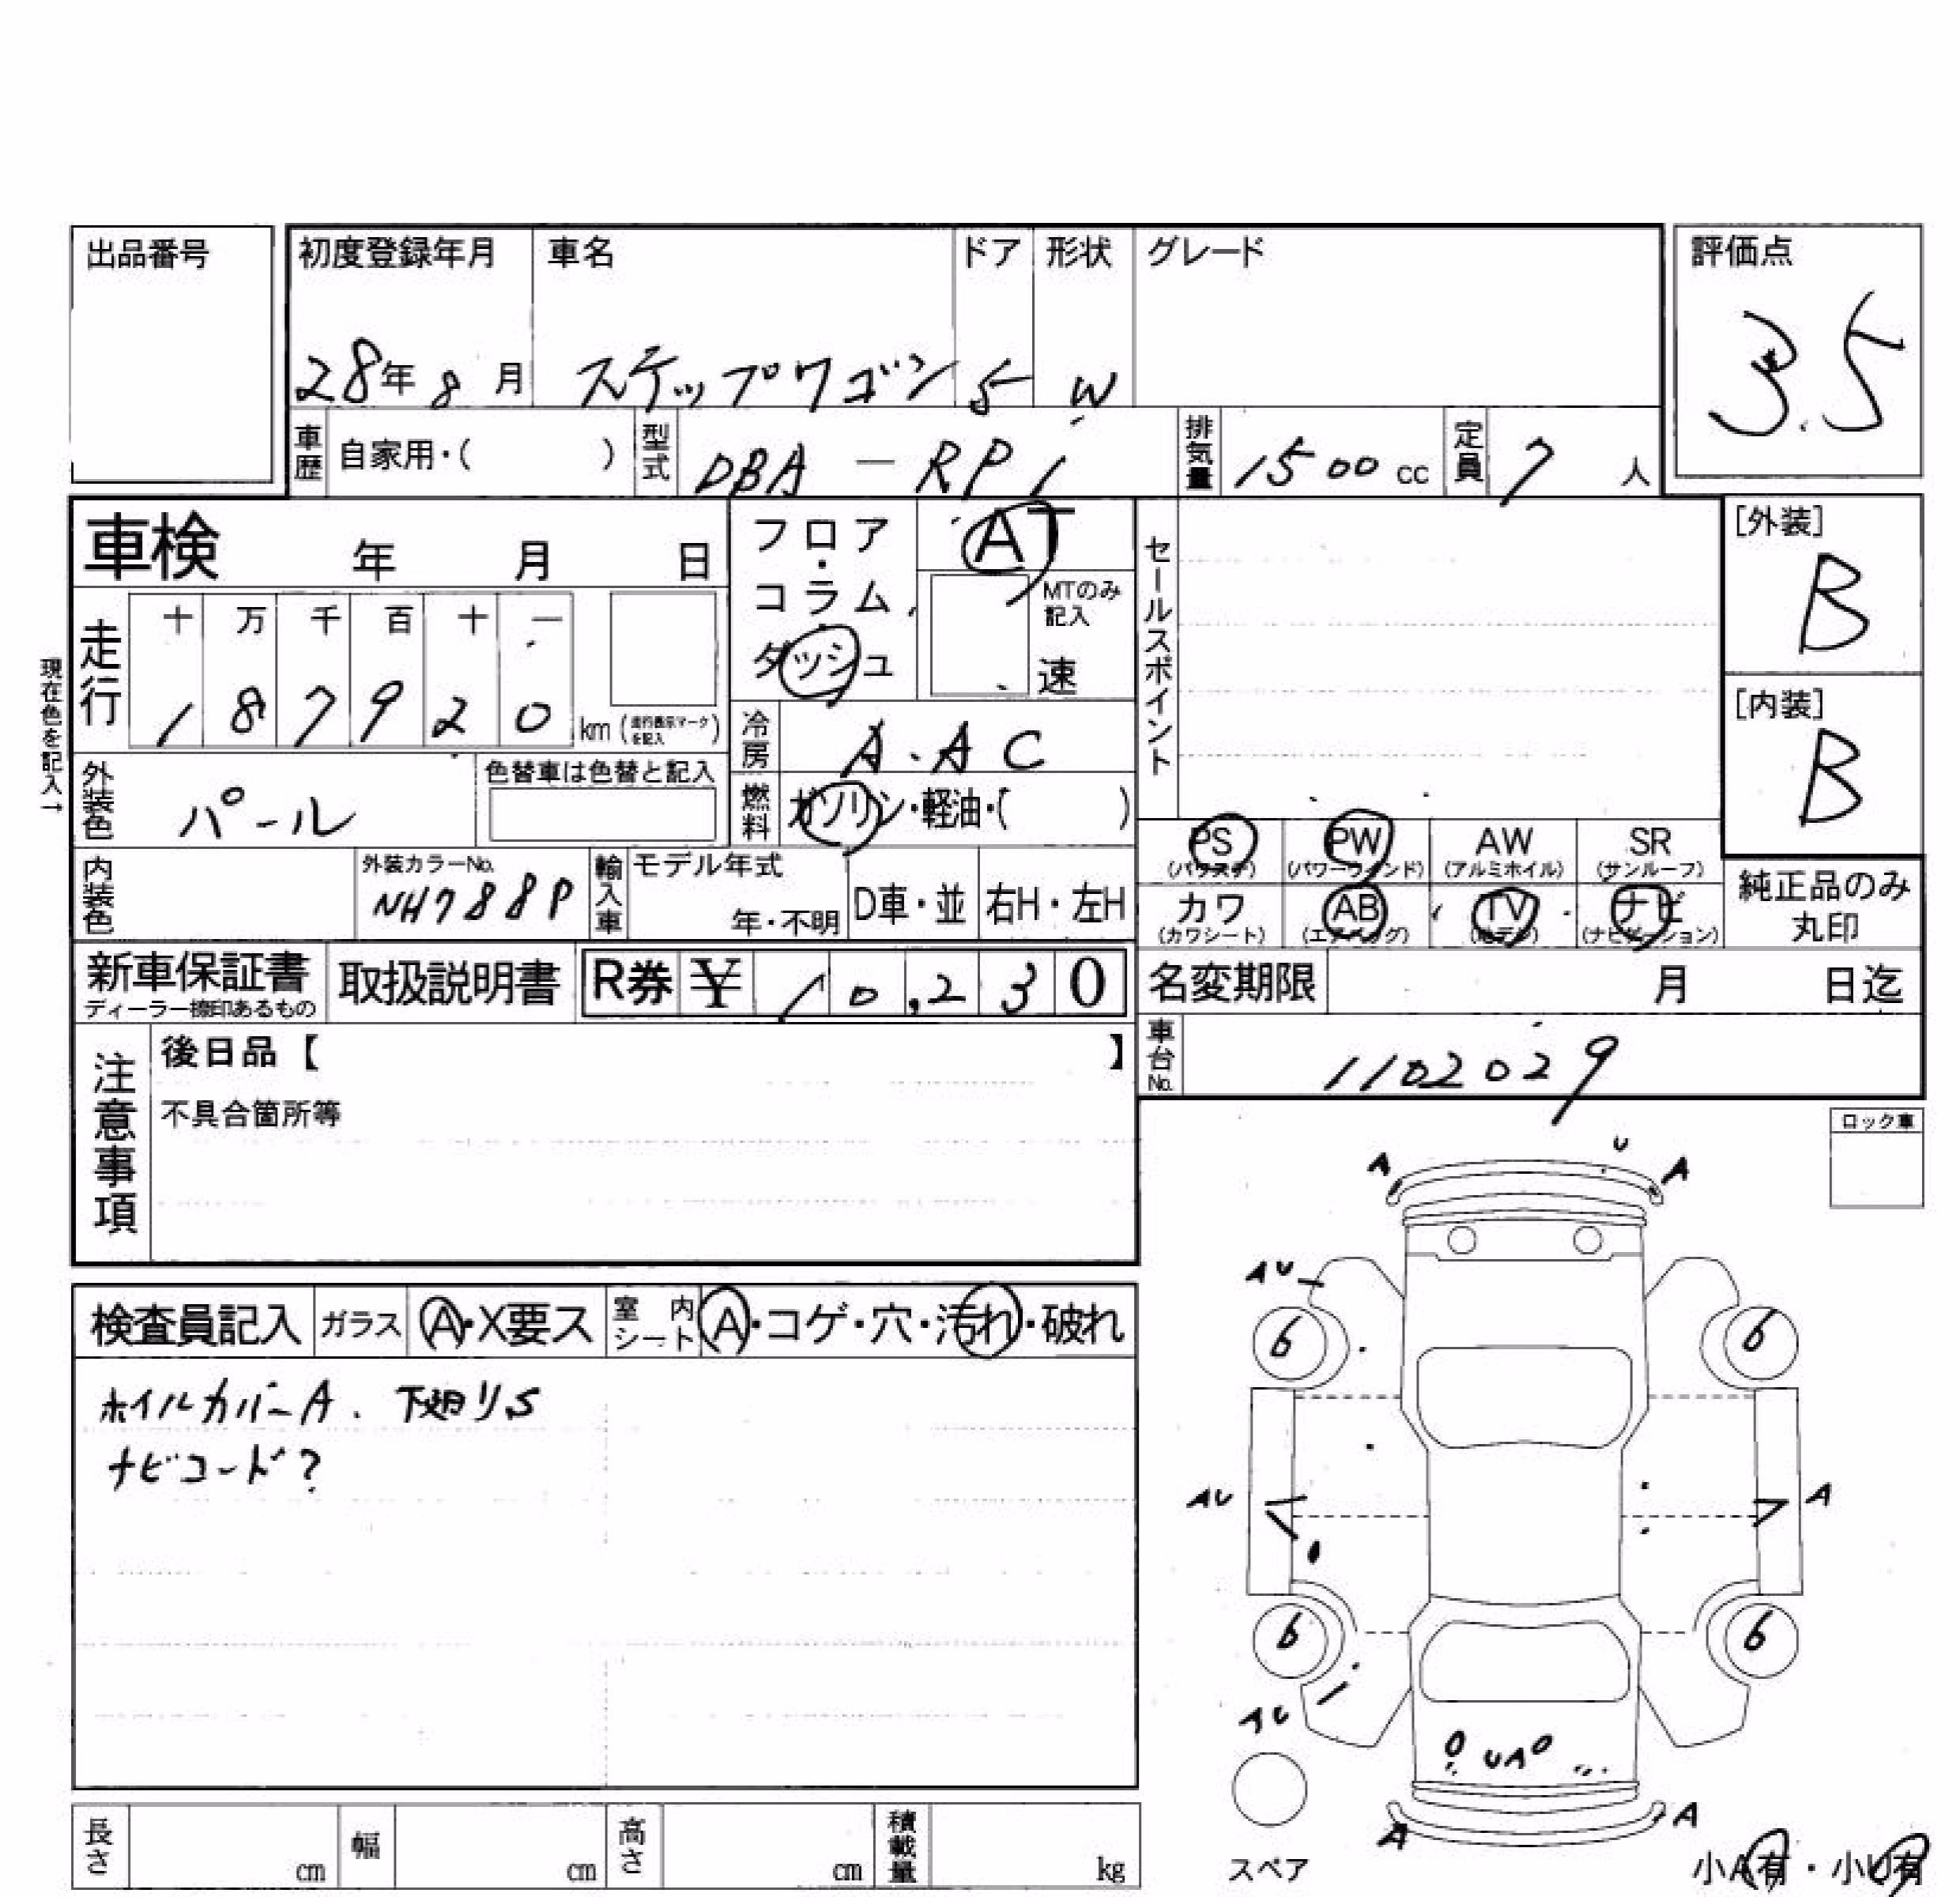 出品番号
初度登録年月 車名 ドア 形状 グレード 評価点
28年8月 ステップワゴン 5 W 3.5
車歴 自家用・( ) 型式 DBA-RP1 排気量 1500cc 定員 7人
車検 年 月 日
フロア・コラム・ダッシュ AT
MTのみ記入 速
セールスポイント
[外装] B
[内装] B
現在色を記入→
走行 十 万 千 百 十 一
187920 km (走行表示マークを記入)
冷房 A.AC
外装色 パール 色替車は色替と記入
燃料 ガソリン・軽油・( )
PS (パワステ) PW (パワーウインド) AW (アルミホイル) SR (サンルーフ)
内装色 外装カラーNo. NH788P
輸入車 モデル年式 年・不明 D車・並 右H・左H
カワ (カワシート) AB (エアバッグ) TV (地デジ) ナビ (ナビゲーション)
純正品のみ丸印
新車保証書 ディーラー捺印あるもの 取扱説明書 R券 ¥ 10,230
名変期限 月 日迄
車台No. 1102029
注意事項 後日品【 】
不具合箇所等
ロック車
検査員記入 ガラス A・X要ス 室内シート A・コゲ・穴・汚れ・破れ
ホイルカバーA. 下廻りS
ナビコード?
A U A
AU
6 6
AU A
6 6
AU
UA
A A
スペア
小A有・小U有
長さ cm 幅 cm 高さ cm 積載量 kg